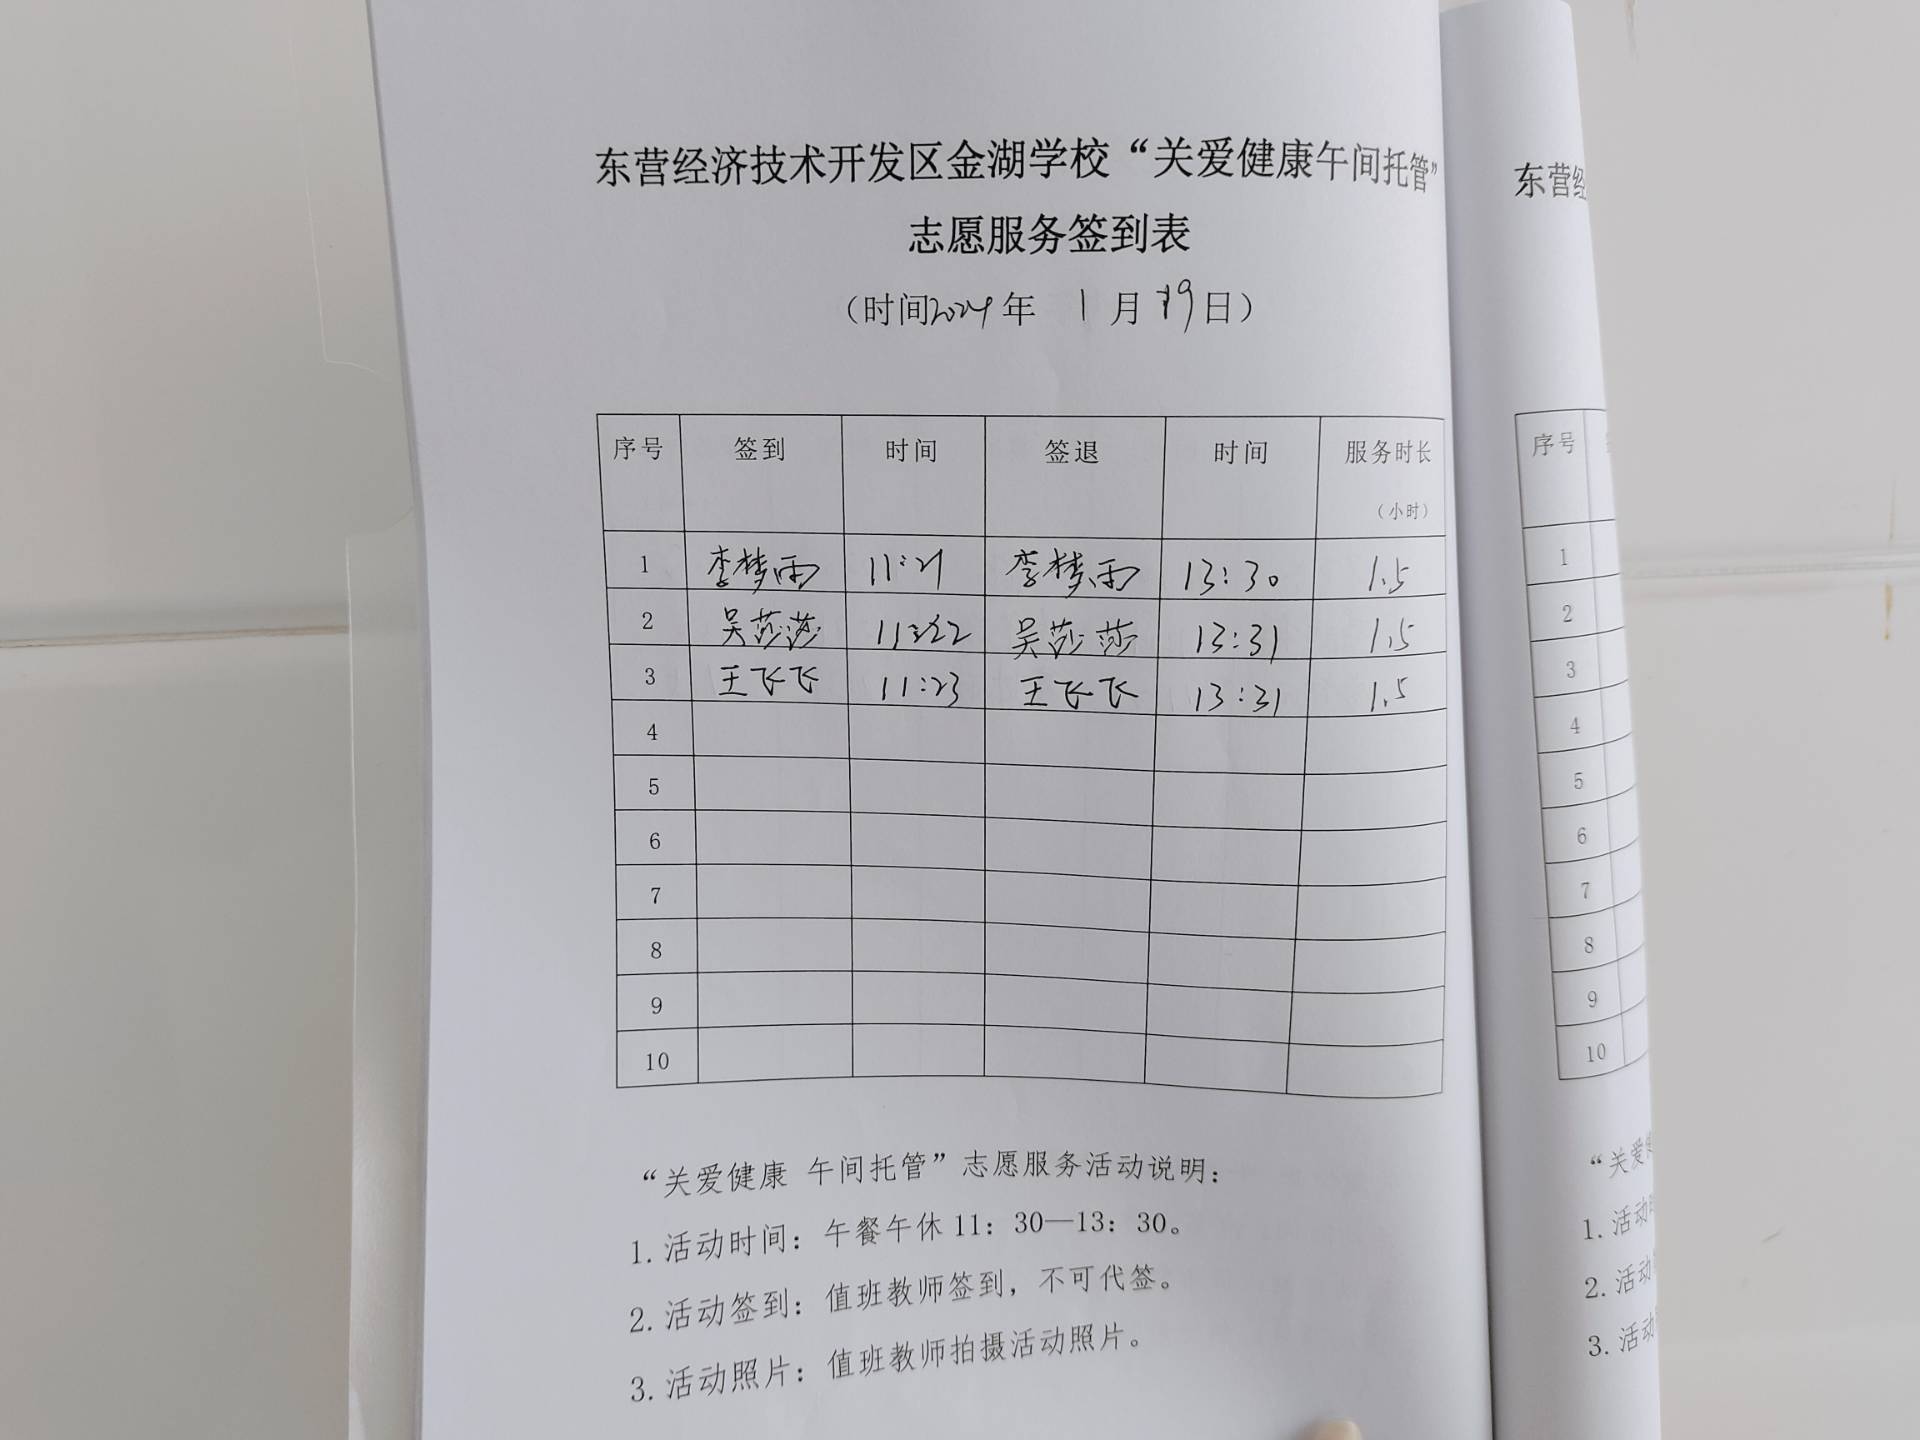 东营经济技术开发区金湖学校“关爱健康午间托管”
志愿服务签到表
（时间2024年 1 月 19日）
序号 签到 时间 签退 时间 服务时长
（小时）
1 李梦雨 11:21 李梦雨 13:30 1.5
2 吴莎莎 11:22 吴莎莎 13:31 1.5
3 王飞飞 11:23 王飞飞 13:31 1.5
4
5
6
7
8
9
10
“关爱健康 午间托管”志愿服务活动说明：
1.活动时间：午餐午休 11：30—13：30。
2.活动签到：值班教师签到，不可代签。
3.活动照片：值班教师拍摄活动照片。
东营经
序号
1
2
3
4
5
6
7
8
9
10
“关爱
1.活动
2.活动
3.活动